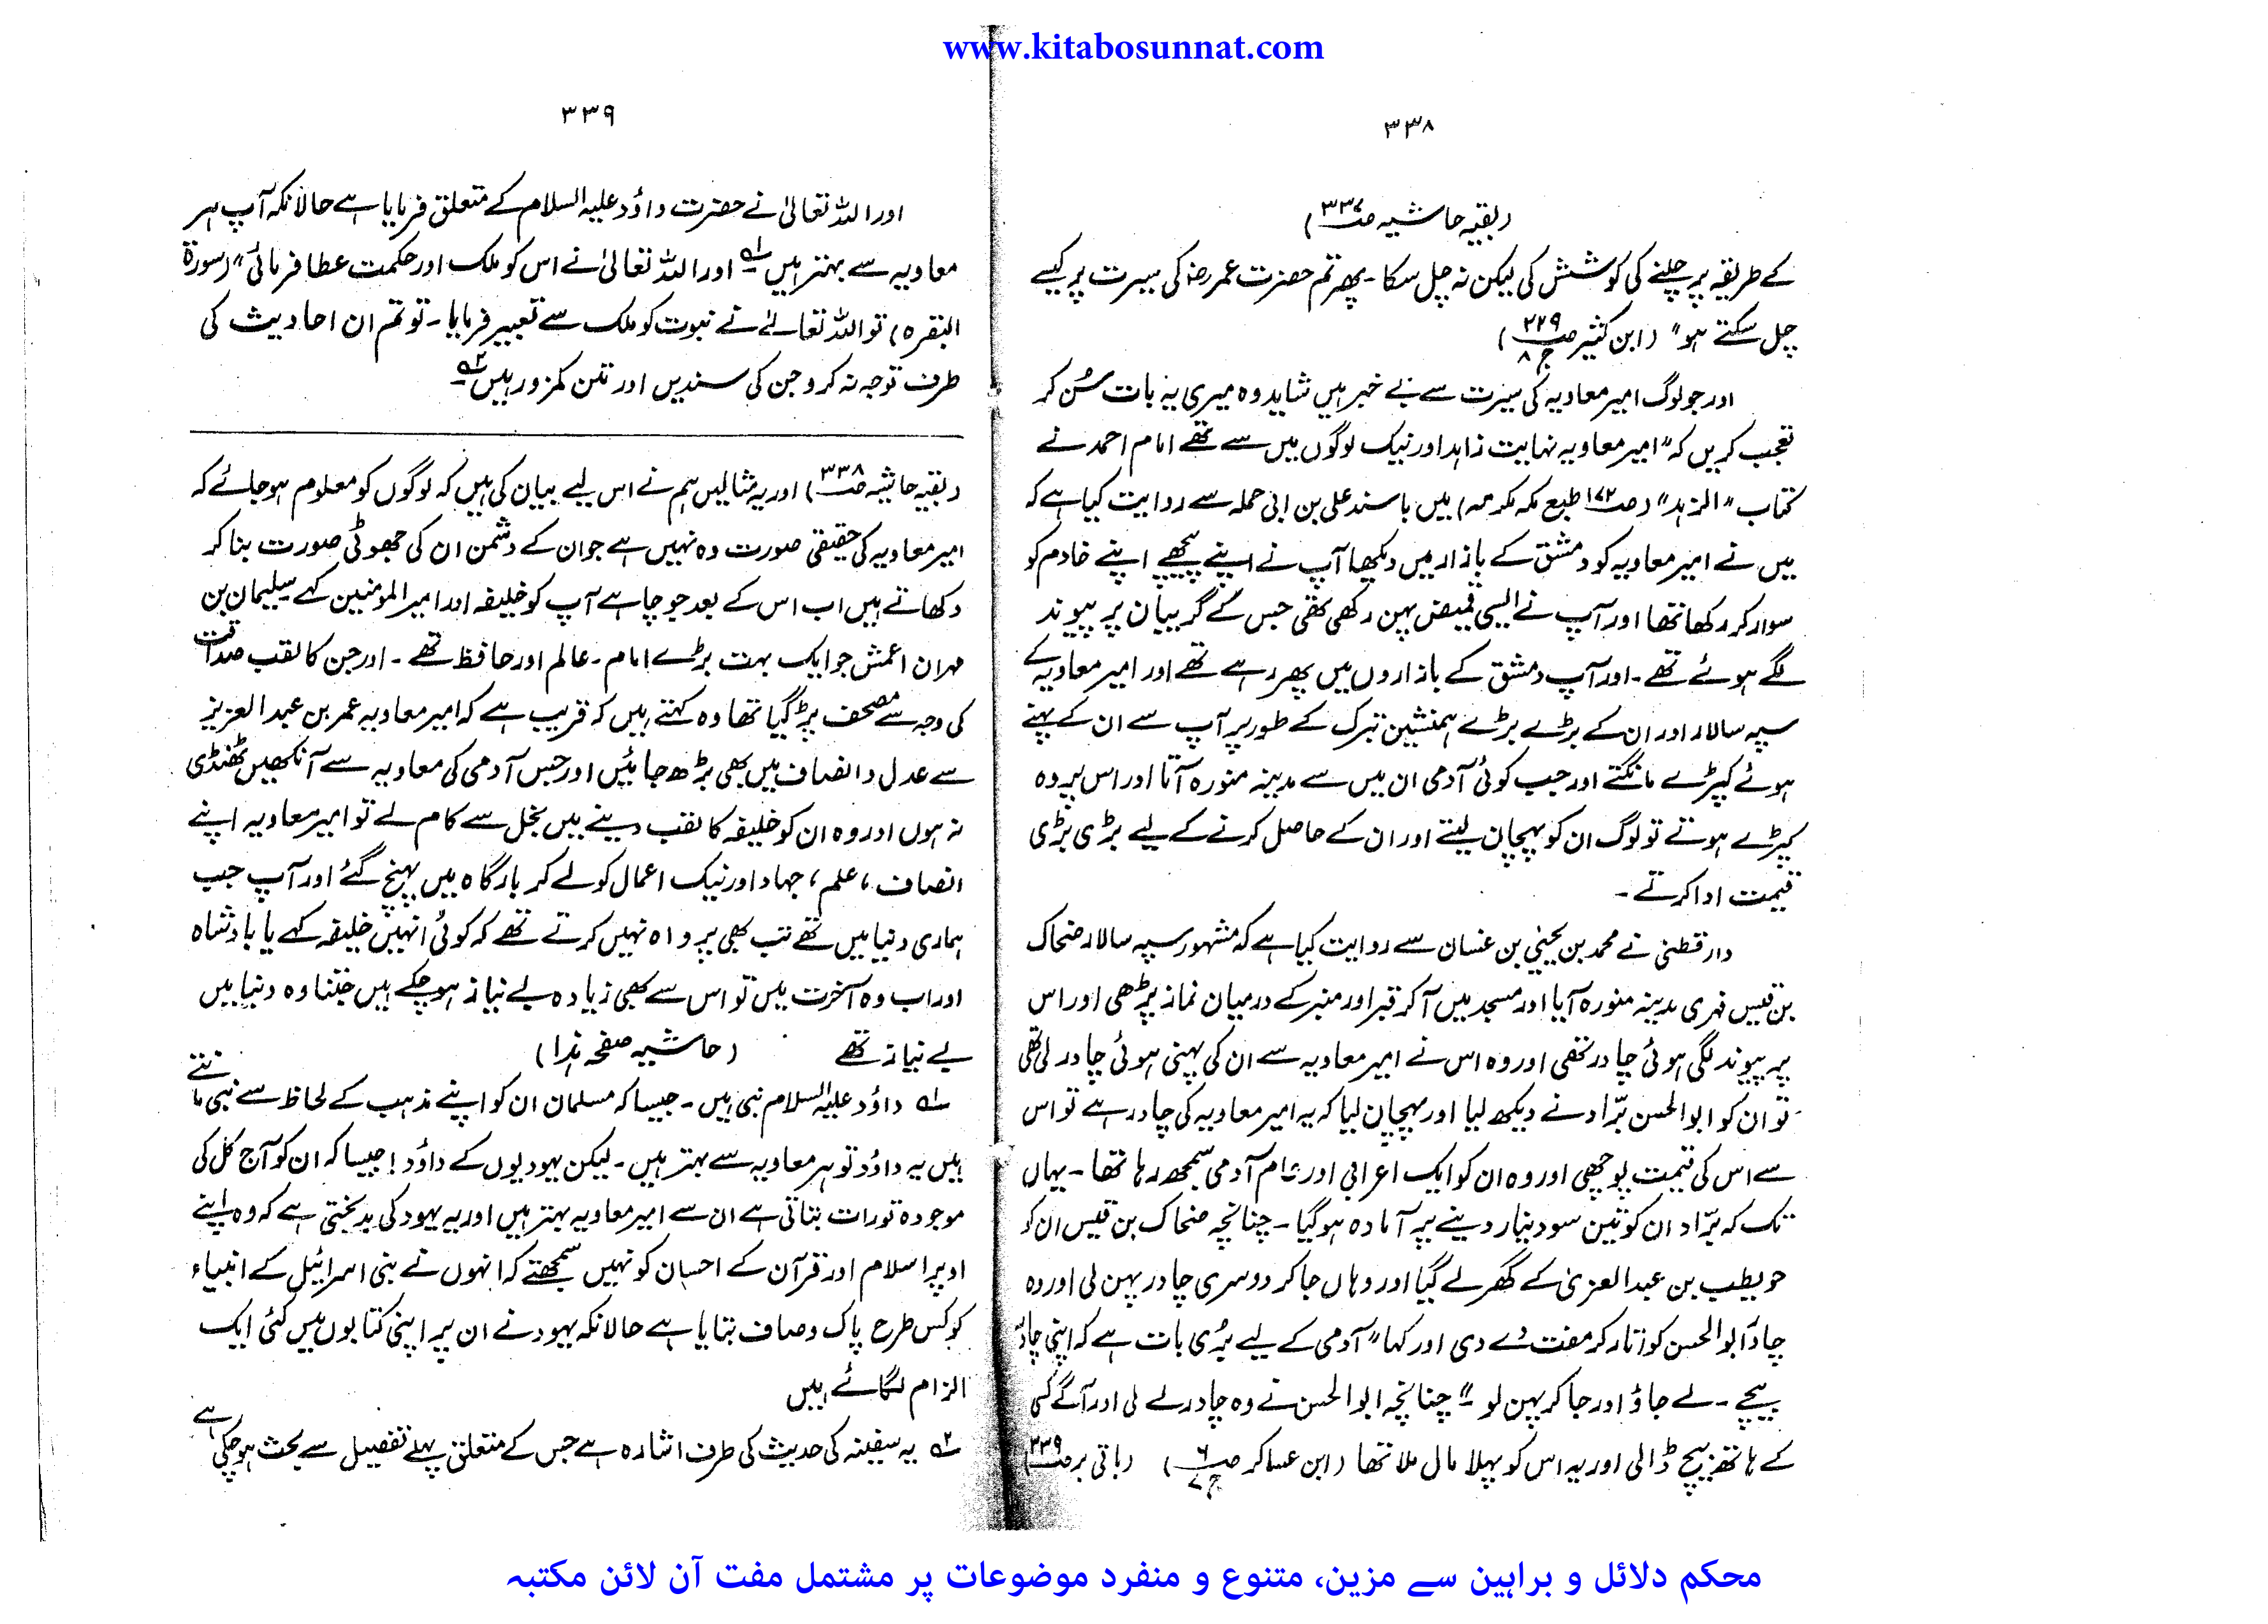 www.kitabosunnat.com
۳۳۸
(بقیہ حاشیہ صـ۳۳۷)
کے طریقہ پر چلنے کی کوشش کی لیکن نہ چل سکا۔ پھر تم حضرت عمر رضؓ کی سیرت پر کیسے
چل سکتے ہو" (ابن کثیر صـ۲۲۹ ج ۸)
اور جو لوگ امیر معاویہ کی سیرت سے بے خبر ہیں شاید وہ میری یہ بات سُن کر
تعجب کریں کہ "امیر معاویہ نہایت زاہد اور نیک لوگوں میں سے تھے امام احمد نے
کتاب "الزہد" (صـ۱۷۲ طبع مکہ مکرمہ) میں باسند علی بن ابی حملہ سے روایت کیا ہے کہ
میں نے امیر معاویہ کو دمشق کے بازار میں دیکھا آپ نے اپنے پیچھے اپنے خادم کو
سوار کر رکھا تھا اور آپ نے ایسی قمیض پہن رکھی تھی جس کے گریبان پر پیوند
لگے ہوئے تھے۔ اور آپ دمشق کے بازاروں میں پھر رہے تھے اور امیر معاویہ کے
سپہ سالار اور ان کے بڑے بڑے ہمنشین تبرک کے طور پر آپ سے ان کے پہنے
ہوئے کپڑے مانگتے اور جب کوئی آدمی ان میں سے مدینہ منورہ آتا اور اس پر وہ
کپڑے ہوتے تو لوگ ان کو پہچان لیتے اور ان کے حاصل کرنے کے لیے بڑی بڑی
قیمت ادا کرتے۔
دارقطنی نے محمد بن یحییٰ بن غسان سے روایت کیا ہے کہ مشہور سپہ سالار ضحاک
بن قیس فہری مدینہ منورہ آیا اور مسجد میں آکر قبر اور منبر کے درمیان نماز پڑھی اور اس
پر پیوند لگی ہوئی چادر تھی اور وہ اس نے امیر معاویہ سے ان کی پہنی ہوئی چادر لی تھی
تو ان کو ابوالحسن برّاد نے دیکھ لیا اور پہچان لیا کہ یہ امیر معاویہ کی چادر ہے تو اس
سے اس کی قیمت پوچھی اور وہ ان کو ایک اعرابی اور عام آدمی سمجھ رہا تھا۔ یہاں
تک کہ برّاد ان کو تین سو دینار دینے پر آمادہ ہو گیا۔ چنانچہ ضحاک بن قیس ان کو
حویطب بن عبدالعزیٰ کے گھر لے گیا اور وہاں جا کر دوسری چادر پہن لی اور وہ
چادر ابوالحسن کو اتار کر مفت دے دی اور کہا "آدمی کے لیے بُری بات ہے کہ اپنی چادر
بیچے۔ لے جاؤ اور جا کر پہن لو" چنانچہ ابوالحسن نے وہ چادر لے لی اور آگے کسی
کے ہاتھ بیچ ڈالی اور یہ اس کو پہلا مال ملا تھا (ابن عساکر صـ۶ ج ۷) (باقی بر صـ۳۳۹)
۳۳۹
اور اللہ تعالیٰ نے حضرت داؤد علیہ السلام کے متعلق فرمایا ہے حالانکہ آپ ہر
معاویہ سے بہتر ہیں ۱؎ اور اللہ تعالیٰ نے اس کو ملک اور حکمت عطا فرمائی" (سورۃ
البقرہ) تو اللہ تعالےٰ نے نبوت کو ملک سے تعبیر فرمایا۔ تو تم ان احادیث کی
طرف توجہ نہ کرو جن کی سندیں اور متن کمزور ہیں ۲؎
(بقیہ حاشیہ صـ۳۳۸) اور یہ مثالیں ہم نے اس لیے بیان کی ہیں کہ لوگوں کو معلوم ہو جائے کہ
امیر معاویہ کی حقیقی صورت وہ نہیں ہے جو ان کے دشمن ان کی جھوٹی صورت بنا کر
دکھاتے ہیں اب اس کے بعد جو چاہے آپ کو خلیفہ اور امیر المومنین کہے سلیمان بن
مہران اعمش جو ایک بہت بڑے امام۔ عالم اور حافظ تھے۔ اور جن کا لقب صداقت
کی وجہ سے مصحف پڑ گیا تھا وہ کہتے ہیں کہ قریب ہے کہ امیر معاویہ عمر بن عبدالعزیز
سے عدل و انصاف میں بھی بڑھ جائیں اور جس آدمی کی معاویہ سے آنکھیں ٹھنڈی
نہ ہوں اور وہ ان کو خلیفہ کا لقب دینے میں بخل سے کام لے تو امیر معاویہ اپنے
انصاف، علم، جہاد اور نیک اعمال کو لے کر بارگاہ میں پہنچ گئے اور آپ جب
ہماری دنیا میں تھے تب بھی پرواہ نہیں کرتے تھے کہ کوئی انہیں خلیفہ کہے یا بادشاہ
اور اب وہ آخرت میں تو اس سے بھی زیادہ بے نیاز ہو چکے ہیں جتنا وہ دنیا میں
بے نیاز تھے (حاشیہ صفحہ ہذا)
۱؎ داؤد علیہ السلام نبی ہیں۔ جیسا کہ مسلمان ان کو اپنے مذہب کے لحاظ سے نبی مانتے
ہیں یہ داؤد تو ہر معاویہ سے بہتر ہیں۔ لیکن یہودیوں کے داؤد! جیسا کہ ان کو آج کل کی
موجودہ تورات بتاتی ہے ان سے امیر معاویہ بہتر ہیں اور یہ یہود کی بدبختی ہے کہ وہ اپنے
اوپر اسلام اور قرآن کے احسان کو نہیں سمجھتے کہ انہوں نے بنی اسرائیل کے انبیاء
کو کس طرح پاک و صاف بتایا ہے حالانکہ یہود نے ان پر اپنی کتابوں میں کئی ایک
الزام لگائے ہیں
۲؎ یہ سفینہ کی حدیث کی طرف اشارہ ہے جس کے متعلق پہلے تفصیل سے بحث ہو چکی ہے
محکم دلائل و براہین سے مزین، متنوع و منفرد موضوعات پر مشتمل مفت آن لائن مکتبہ